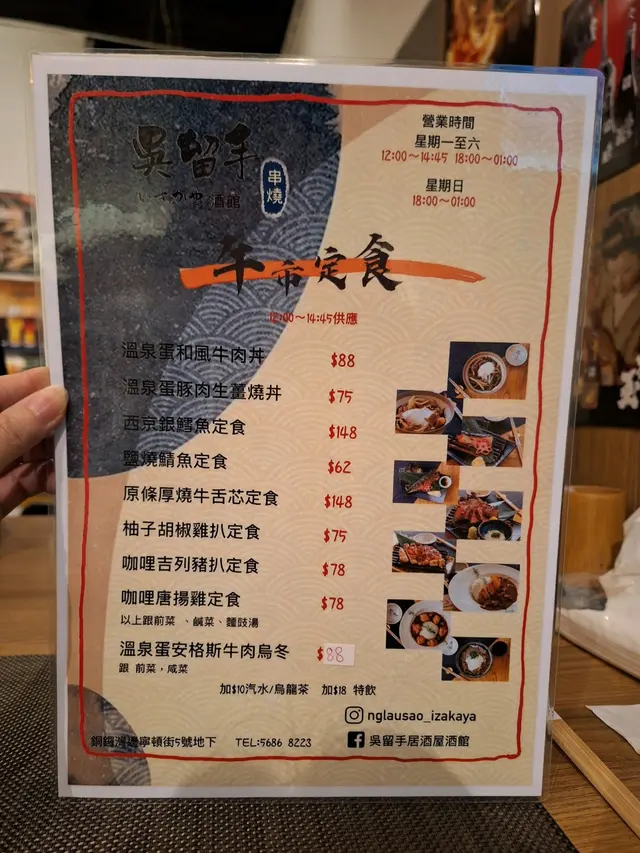 吳留手
いざかや酒館
串燒
營業時間
星期一至六
12:00～14:45 18:00～01:00
星期日
18:00～01:00
午市定食
12:00～14:45供應
溫泉蛋和風牛肉丼 $88
溫泉蛋豚肉生薑燒丼 $75
西京銀鱈魚定食 $148
鹽燒鯖魚定食 $62
原條厚燒牛舌芯定食 $148
柚子胡椒雞扒定食 $75
咖哩吉列豬扒定食 $78
咖哩唐揚雞定食 $78
以上跟前菜 、鹹菜、麵豉湯
溫泉蛋安格斯牛肉烏冬 $88
跟 前菜，咸菜
加$10汽水/烏龍茶 加$18 特飲
nglausao_izakaya
銅鑼灣邊寧頓街5號地下 TEL:5686 8223
吳留手居酒屋酒館